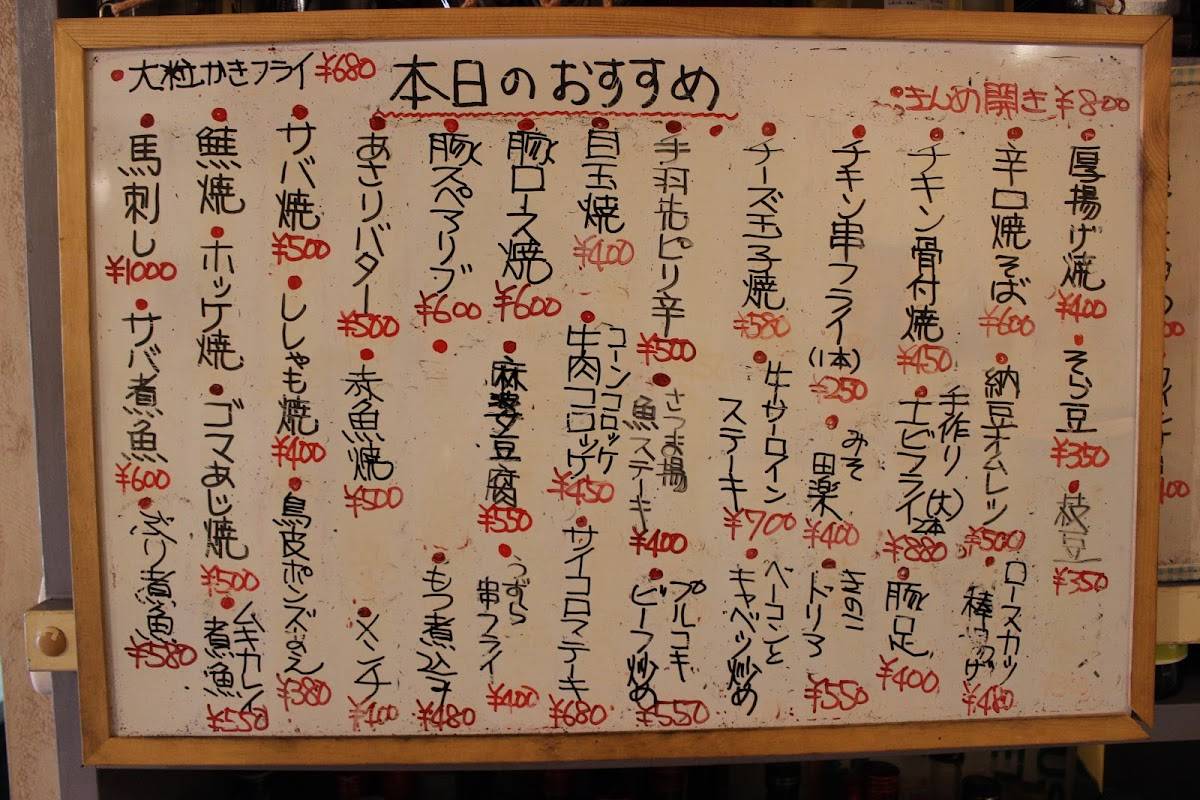 本日のおすすめ
きんめ開き ¥800
大粒かきフライ ¥680
厚揚げ焼 ¥400
そら豆 ¥350
枝豆 ¥350
辛口焼そば ¥600
納豆オムレツ ¥500
ロースカツ
棒
チキン骨付焼 ¥450
手作り(大)
エビフライ2本 ¥880
豚足 ¥400
チキン串フライ(1本) ¥250
みそ
田楽 ¥400
きのこ
ドリア ¥550
チーズ玉子焼 ¥580
牛サーロイン
ステーキ ¥700
ベーコンと
キャベツ炒め
手羽先ピリ辛 ¥500
さつま揚
魚ステーキ ¥400
プルコギ
ビーフ炒め ¥550
目玉焼 ¥400
コーンコロッケ
牛肉コロッケ ¥450
サイコロステーキ ¥680
豚ロース焼 ¥600
麻婆豆腐 ¥550
うずら
串フライ ¥400
豚スペアリブ ¥600
もつ煮込み ¥480
あさりバター ¥500
赤魚焼 ¥500
メンチ ¥400
サバ焼 ¥500
ししゃも焼 ¥400
鳥皮ポンズ和え ¥380
鮭焼
ホッケ焼
ゴマあじ焼 ¥500
ムキカレイ
煮魚 ¥550
馬刺し ¥1000
サバ煮魚 ¥600
ぶり煮魚 ¥580